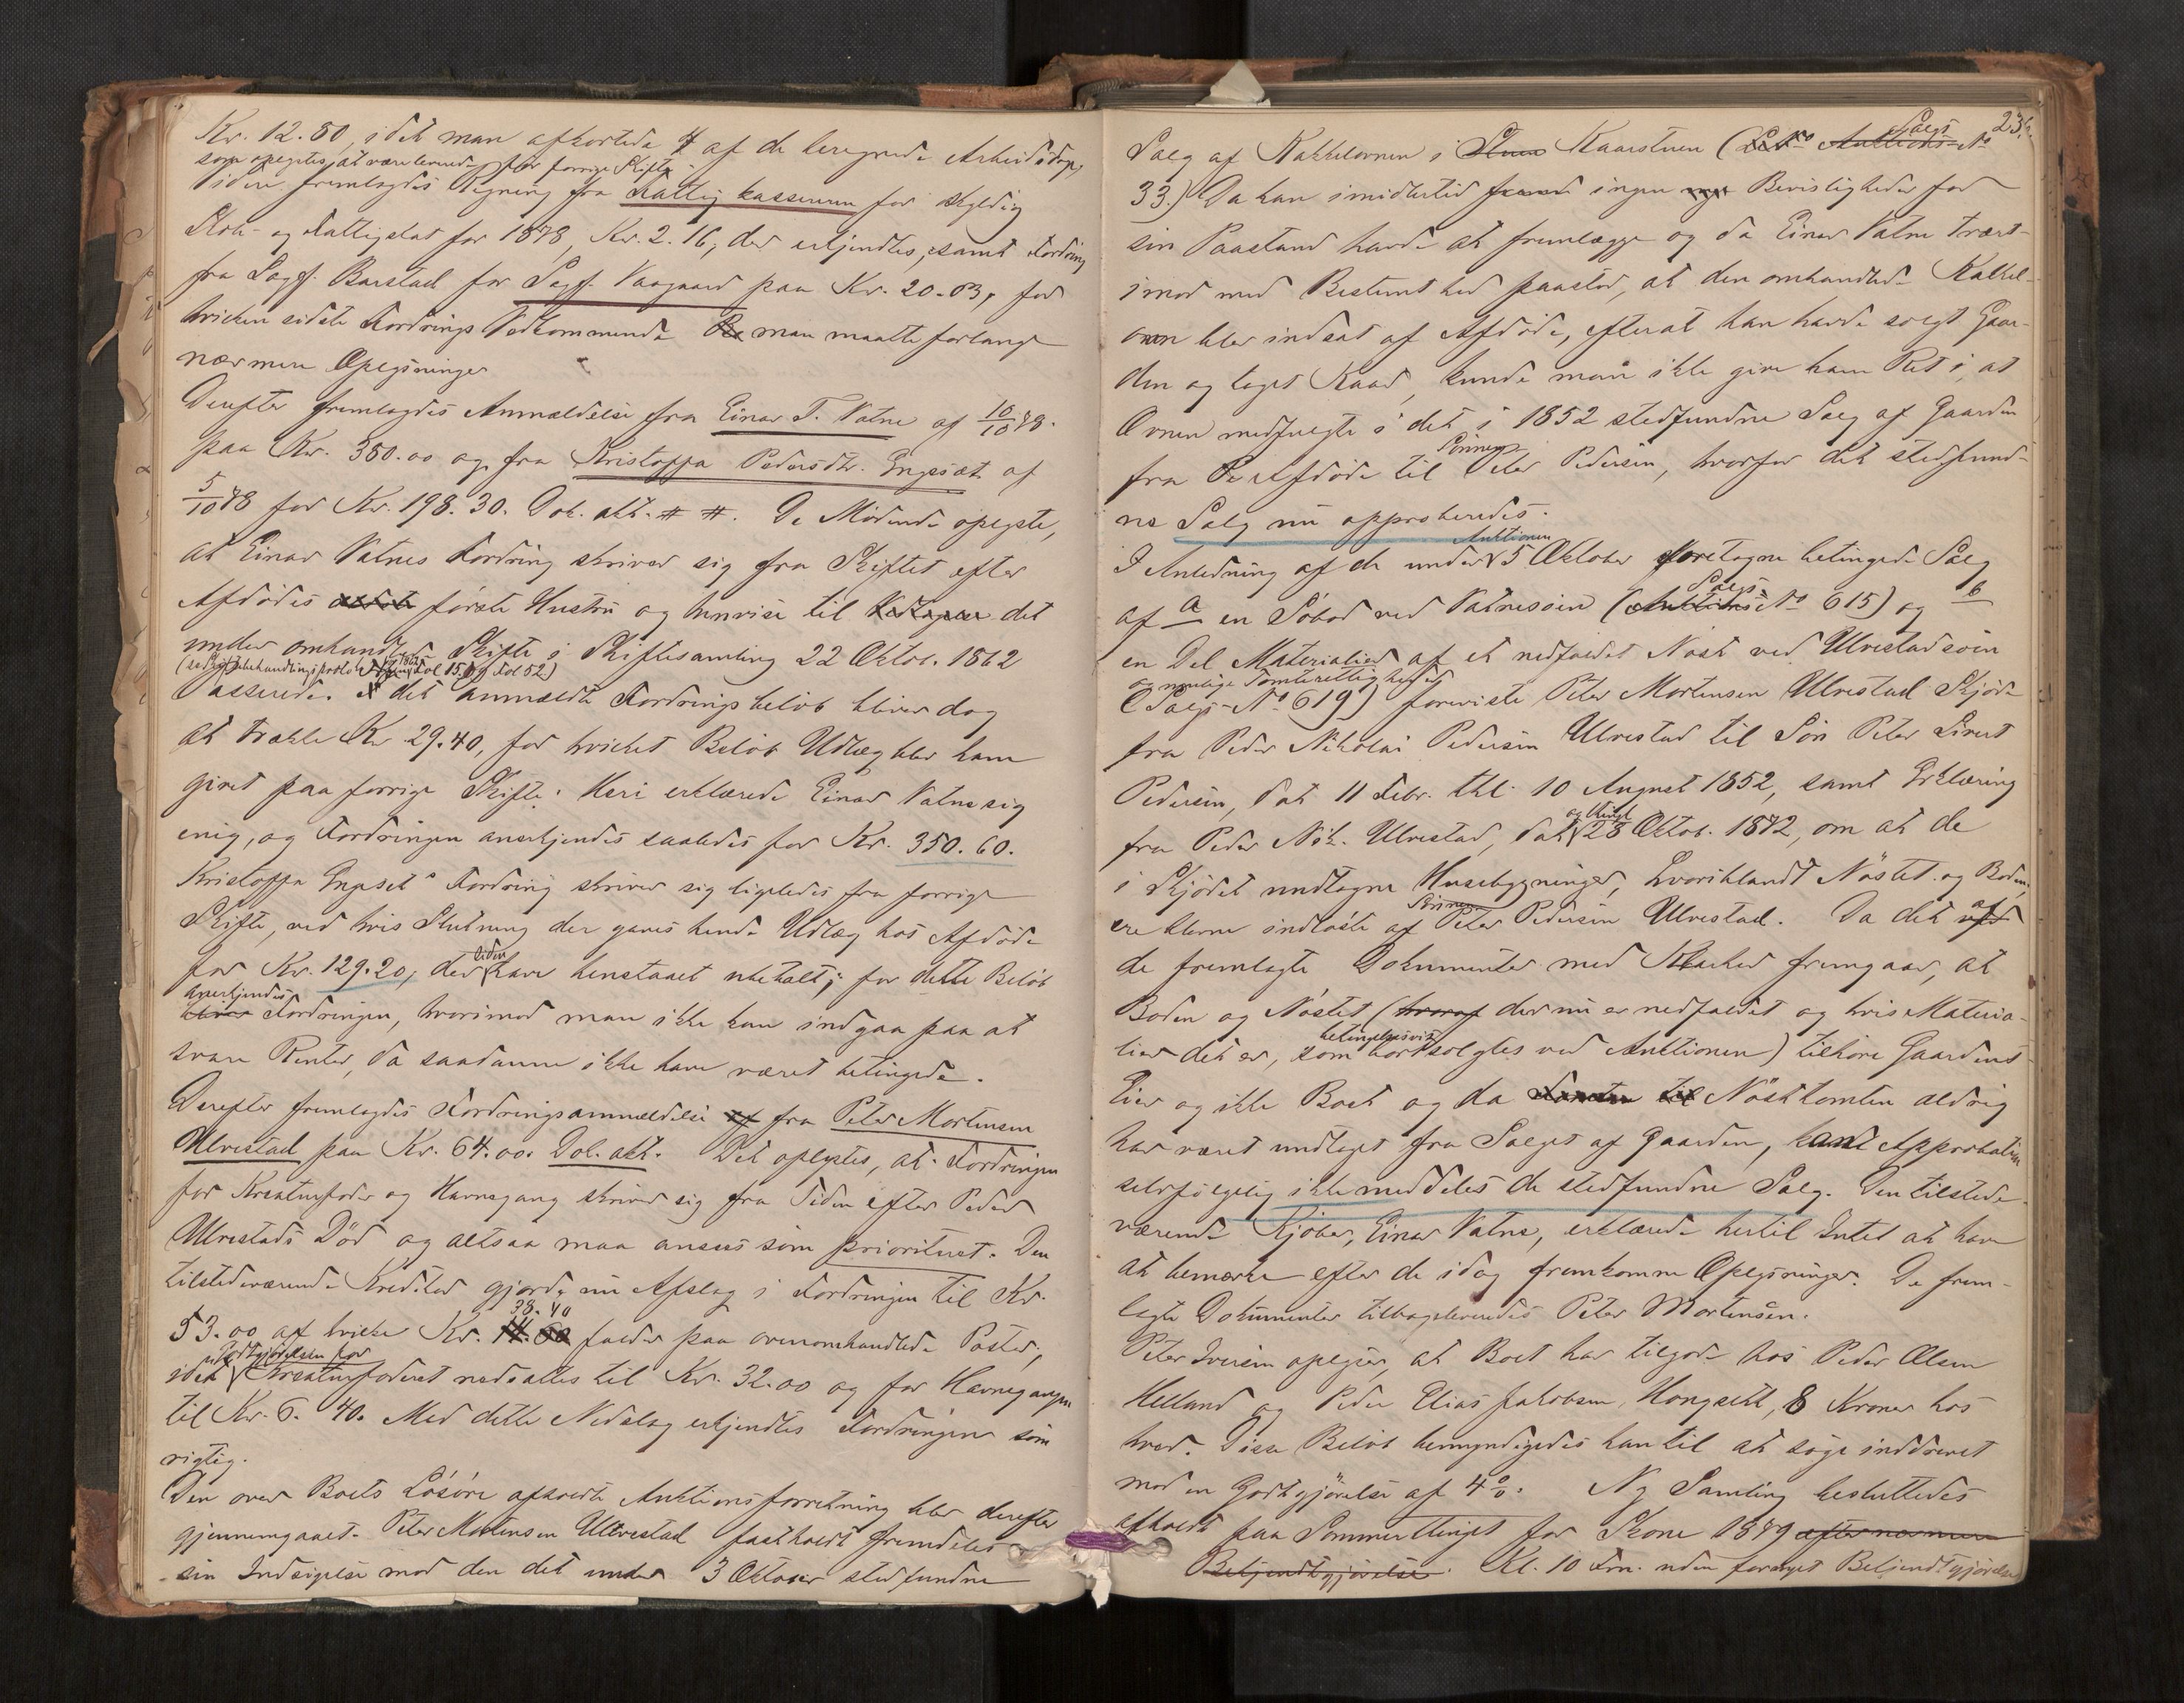 Kr. 12.50, idet man afkortede 4 af de beregnede Arbeidsdage,
som opgives at være leverede før forrige Skifte.
Videre fremlagdes Regning fra Fattigkassereren for skyldig
Skole- og Fattigskat for 1878, Kr. 2.16, der erkjendtes, samt Fordring
fra Sagf. Barstad for Sagf. Vaagaard paa Kr. 20.03, for
hvilken sidste Fordrings Vedkommende man maatte forlange
nærmere Oplysninger.
Derefter fremlagdes Anmældelse fra Einar T. Vatne af 10/10 78.
paa Kr. 380.00 og fra Kristoffa Pedersdtr. Engeset af
5/10 78 for Kr. 198.30. Dok. akt. # #. De Mødende oplyste,
at Einar Vatnes Fordring skriver sig fra Skiftet efter
Afdødes første Hustru og henvise til det
under omhandlede Skifte i Skiftesamling 22 Oktob. 1862
(se Skiftebehandlingsprotokol Fol 15. og Fol 52)
Passerede. I det anmældte Fordringsbeløb bliver dog
at trække Kr 29.40, for hvilket Beløb Udlæg blev ham
givet paa forrige Skifte. Heri erklærede Einar Vatne sig
enig, og Fordringen anerkjendes saaledes for Kr. 350.60.
Kristoffa Engeset's Fordring skriver sig ligeledes fra forrige
Skifte, ved hvis Slutning der gaves hende Udlæg hos Afdøde
for Kr. 129.20, der siden have henstaaet ubetalt; for dette Beløb
anerkjendes
Fordringen, hvorimod man ikke kan indgaa paa at
svare Renter, da saadanne ikke have været betingede.
Derefter fremlagdes Fordringsanmældelse fra Peter Mortensen
Ulvestad paa Kr. 64.00. Dok. akt. Det oplystes, at Fordringen
for Kreaturfoder og Havnegang skriver sig fra Tiden efter Peder
Ulvestads Død og altsaa maa ansees som prioriteret. Den
tilstedeværende Kreditor gjorde nu Afslag i Fordringen til Kr.
38.40
53.00 af hvilke Kr. falder paa ovenomhandlede Poster,
Godtgjørelsen for
idet Kreaturfoderet nedsattes til Kr. 32.00 og for Havnegangen
til Kr. 6.40. Med dette Nedslag erkjendtes Fordringen som
rigtig.
Den over Boets Løsøre afholdte Auktionsforretning blev derefter
gjennemgaaet. Peter Mortensen Ulvestad fastholdt fremdeles
sin Indsigelse mod den det under 3 Oktober stedfundne
23
Salgs
Salg af Kakkelovnen i Kaarstuen ( No
33.) Da han imidlertid ingen Bevisligheder for
sin Paastand havde at fremlægge og da Einar Vatne tvært-
imod med Bestemthed paastod, at den omhandlede Kakkel-
ovn blev indsat af Afdøde, efterat han havde solgt Gaar-
den og taget Kaar, kunde man ikke give ham Ret i, at
Ovnen medfulgte i det i 1852 stedfundne Salg af Gaarden
Sønnen
fra Afdøde til Peter Pedersen, hvorfor det stedfund-
ne Salg nu approberedes.
Auktionen
I Anledning af de under 5 Oktober foretagne betingede Salg
Salgs
af a en Søbod ved Vatnesøen ( No 615) og b
en Del Materialier af et nedfaldet Nøst ved Ulvestadsøen
og mulige Tomterettigheder
(Salgs-No 619) foreviste Peter Mortensen Ulvestad Skjøde
fra Peder Nikolai Pedersen Ulvestad til Søn Peter Sivert
Pedersen, dat 11 Febr. thl. 10 August 1852, samt Erklæring
og thingl
fra Peder Nik. Ulvestad, dat 28 Oktob. 1872, om at de
i Skjødet undtagne Husebygninger, hvoriblandt Nøstet og Boden,
Sønnen
ere blevne indløste af Peter Pedersen Ulvestad. Da det af
de fremlagte Dokumenter med Klarhed fremgaar, at
Boden og Nøstet (der nu er nedfaldet og hvis Materia-
betingelsesvis
lier det er, som bortsolgtes ved Auktionen) tilhøre Gaardens
Eier og ikke Boet og da Nøsttomten aldrig
har været undtaget fra Salget af Gaarden, kan Approbation
selvfølgelig ikke meddeles de stedfundne Salg. Den tilstede-
værende Kjøber, Einar Vatne, erklærede hertil Intet at have
at bemærke efter de idag fremkomne Oplysninger. De frem-
lagte Dokumenter tilbageleveredes Peter Mortensen.
Peter Iversen oplyser, at Boet har tilgode hos Peder Olsen
Helland og Peder Elias Jakobsen Hongseth, 8 Kroner hos
hver. Disse Beløb bemyndigedes han til at søge inddrevet
mod en Godtgjørelse af 4%. Ny Samling besluttedes
afholdt paa Sommerthinget for Skone 1879 efter nærmere
Bekjendtgjørelse. Kl. 10 Fm. uden fornyet Bekjendtgjørelse